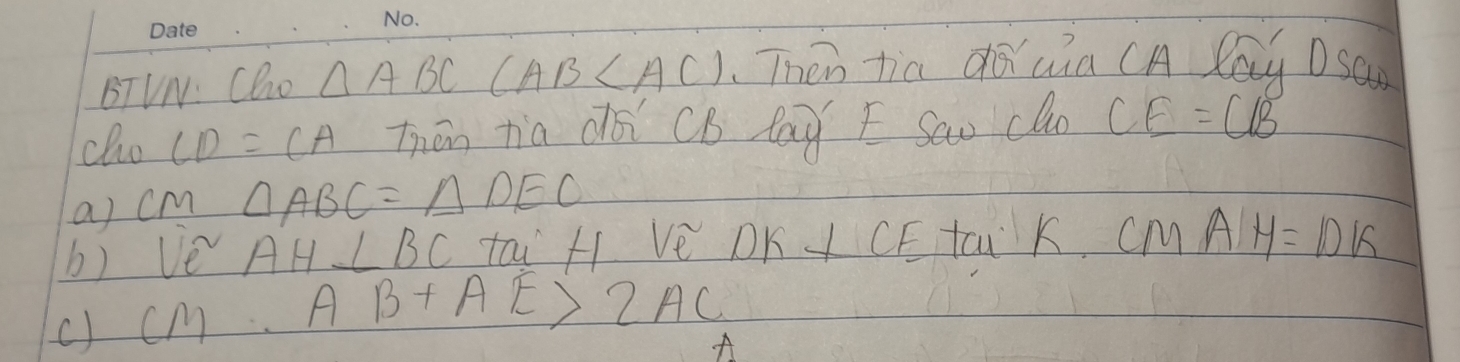 Date No.
BTVN: Cho Δ ABC (AB < AC). Trên tia đối của CA lấy D sao
cho CD = CA Trên tia đối CB lấy E sao cho CE = CB
a) CM Δ ABC = Δ DEC
b) Vẽ AH ⊥ BC tại H Vẽ DK ⊥ CE tại K. CM AH = DK
c) CM. AB + AE > 2AC
A